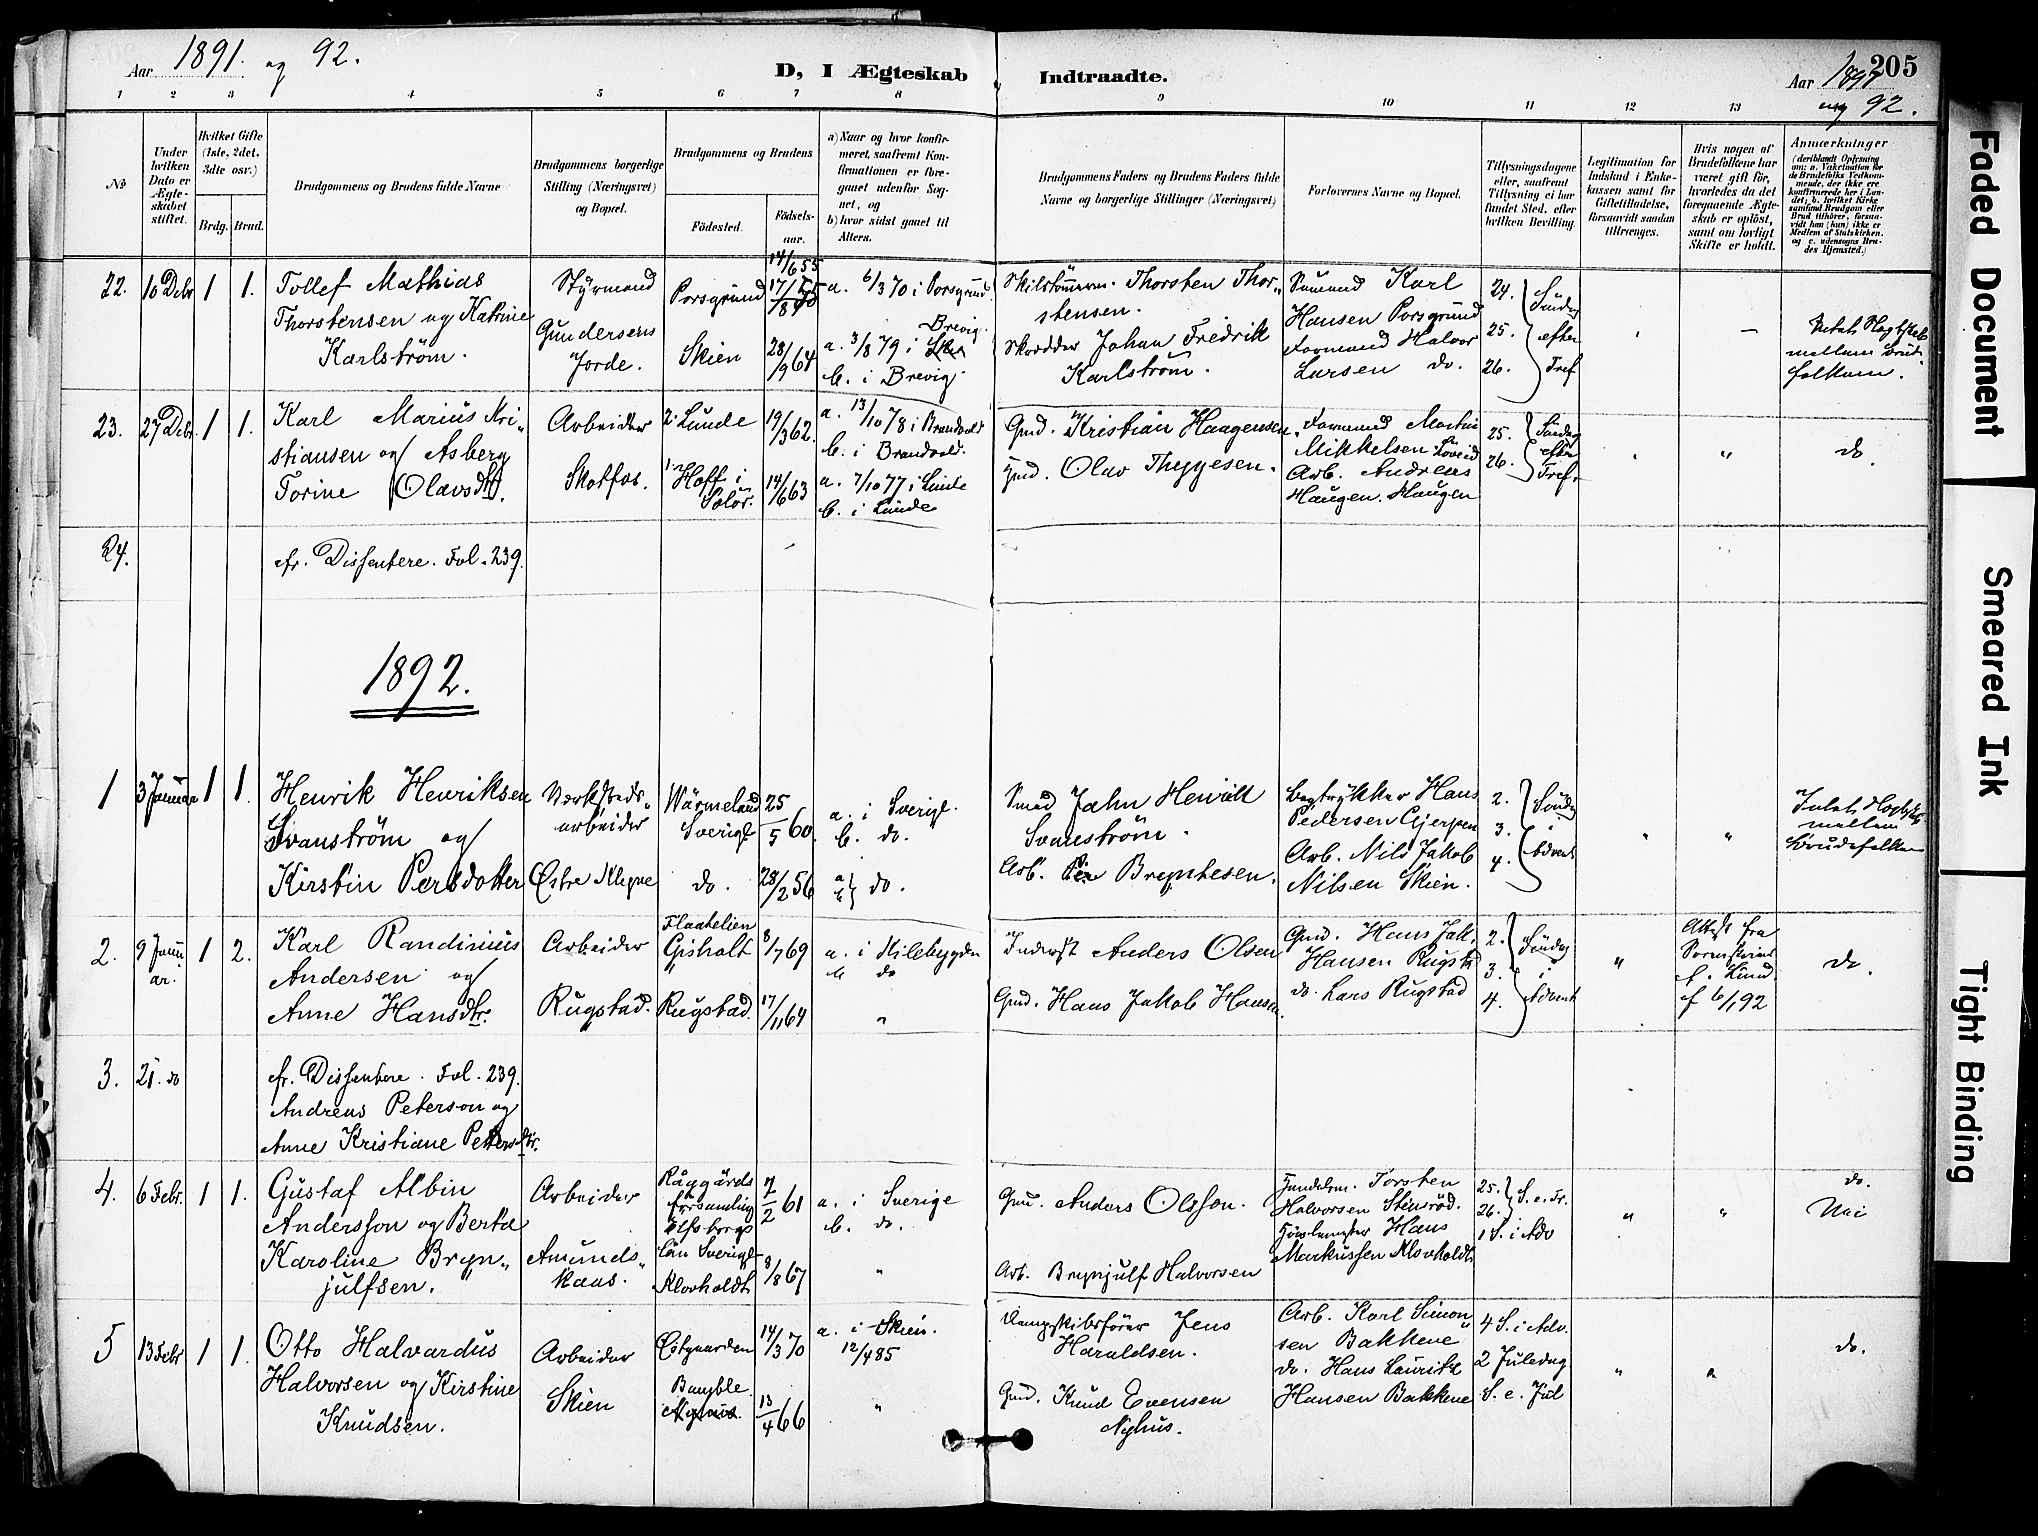 Aar 1891 og 92.
D, I Ægteskab Indtraadte.
205
Aar 1891
og 92.
1 2 3 4 5 6 7 8 9 10 11 12 13
No
Under hvilken Dato er Ægteskabet stiftet.
Hvilket Gifte (1ste, 2det, 3die osv.)
Brdg. Brud.
Brudgommens og Brudens fulde Navne
Brudgommens borgerlige Stilling (Næringsvei) og Bopæl.
Brudgommens og Brudens
Fødested.
Fødselsaar.
a) Naar og hvor konfirmeret, saafremt Konfirmationen er foregaaet udenfor Sognet, og
b) hvor sidst gaaet til Alters.
Brudgommens Faders og Brudens Faders fulde Navne og borgerlige Stillinger (Næringsvei)
Forlovernes Navne og Bopæl.
Tillysningsdagene eller, saafremt Tillysning ei har fundet Sted, efter hvilken Bevilling.
Legitimation for Indskud i Enkekassen samt for Giftetilladelse, forsaavidt saadan tiltrænges.
Hvis nogen af Brudefolkene har været gift før, hvorledes da det foregaaende Ægteskab er opløst, samt om lovligt Skifte er holdt.
Anmærkninger
22. 10 Decbr 1 1.
Tollef Mathias
Thorstensen og Katrine
Karlstrøm.
Styrmand
Gundersens
Jorde.
Porsgrund
Skien
14/6 55
28/9 64
a. 6/3 70 i Porsgrund
a. 3/8 79 i Brevig
b. i Brevig
Skibstømmerm. Thorsten Thor-
stensen.
Skrædder Johan Fredrik
Karlstrøm.
Sømand Karl
Hansen Porsgrund
Formand Halvor
Larsen do.
24.
25.
26.
Søndag
efter
Tref
23. 27 Decbr. 1 1.
Karl Marius Kri-
stiansen og Asberg
Torine Olavsdtr.
Arbeider
Skotfos.
2. Lunde
1. Hoff i
Solør.
19/3 62.
14/6 63
a. 13/10 78 i Brandvold
b. i Brandvold.
a. 7/10 77 i Lunde
b. i Lunde
Gmd. Kristian Haagensen
Gmd. Olav Thygesen.
Formand Martin
Mikkelsen Løveid
Arb. Andreas
Haugen. Haugen
25.
26.
Søndag
efter
Tref.
do
24.
cfr. Dissentere. Fol. 239.
1892.
1 3 Januar 1 1.
Henrik Henriksen
Svanstrøm og
Kirstin Persdotter
Værksteds-
arbeider
Østre Klyve
Wärmeland
Sverige
do.
25/5 60.
28/2 56
a. i Sverige.
b. do.
a b } do.
Smed Jahn Henrik
Svanstrøm.
Arb. Per Bryntesen.
Bogtrykker Hans
Pedersen Gjerpen
Arb. Nils Jakob
Nilsen Skien.
2.
3.
4.
Søndag
i
Advent
mellem
Brudefolkene
2. 9 Janu
ar. 1 2.
Karl Randinius
Andersen og
Anne Hansdtr.
Arbeider
Rugstad.
Flaatelien
Gisholt
Rugstad.
8/7 69
17/11 64
a. i Kilebygden
b do
"
Inderst Anders Olsen
Gmd. Hans Jakob Hansen
Gmd. Hans Jak.
Hansen Rugstd
do. Lars Rugstad
2.
3.
4.
Søndag
i
Advent
Attest fra
Sorenskriver
Lund
af 6/1 92
do.
3. 21. do
cfr. Dissentere. Fol. 239.
Andreas Peterson og
Anne Kristiane Pettersdtr.
4. 6 Febr. 1 1.
Gustaf Albin
Andersson og Berta
Karoline Bryn-
julfsen.
Arbeider
Amunds-
kaas.
Råggärds
Forsamling
Elfsborgs
län Sverige
Klovholdt
7/2 61
8/8 67
a. i Sverige
b. do.
"
Gmd. Anders Olsson.
Arb. Brynjulf Halvorsen
Torsten
Halvorsen Stensrød.
Hans
Markussen Klovholdt
25.
26.
S. e. Tr.
1 S. i Adv
do.
Nei
5 13 Febr 1 1.
Otto Halvardus
Halvorsen og Kirstine
Knudsen.
Arbeider
Skien
Østgaarden
Bamble
14/3 70
13/4 66
a. i Skien.
12/4 85
"
Dampskibsfører Jens
Haraldsen.
Gmd. Knud Evensen
Nyhus.
Arb. Karl Simon-
sen Bakkene
do. Hans Lauritz
Hansen Bakkene
4 S. i Adv.
2 Juledag
S. e. Jul
do.
Faded Document
Smeared Ink
Tight Binding